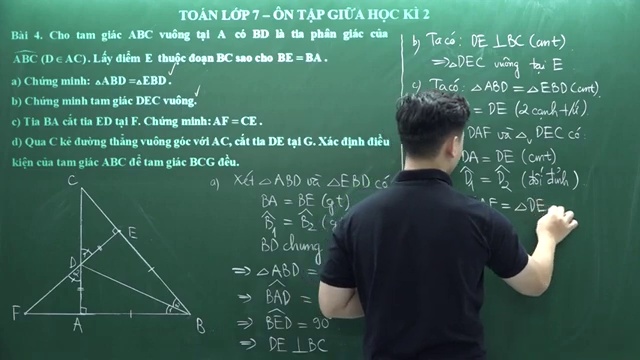 TOÁN LỚP 7 – ÔN TẬP GIỮA HỌC KÌ 2
Bài 4. Cho tam giác ABC vuông tại A có BD là tia phân giác của
ABC (D ∈ AC). Lấy điểm E thuộc đoạn BC sao cho BE = BA.
a) Chứng minh: △ABD = △EBD.
b) Chứng minh tam giác DEC vuông.
c) Tia BA cắt tia ED tại F. Chứng minh: AF = CE.
d) Qua C kẻ đường thẳng vuông góc với AC, cắt tia DE tại G. Xác định điều
kiện của tam giác ABC để tam giác BCG đều.
C
E
D
F
A
B
a) Xét △ABD và △EBD có
BA = BE (gt)
B̂1 = B̂2
BD chung
⇒ △ABD =
⇒ BAD =
⇒ BED = 90
⇒ DE ⊥ BC
b) Ta có: DE ⊥ BC (cmt)
⇒ △DEC vuông tại E
c) Ta có: △ABD = △EBD (cmt).
= DE (2 cạnh t/ứ)
DAF và △ DEC có:
DA = DE (cmt)
D̂1 = D̂2 (đối đỉnh)
AF = △DE